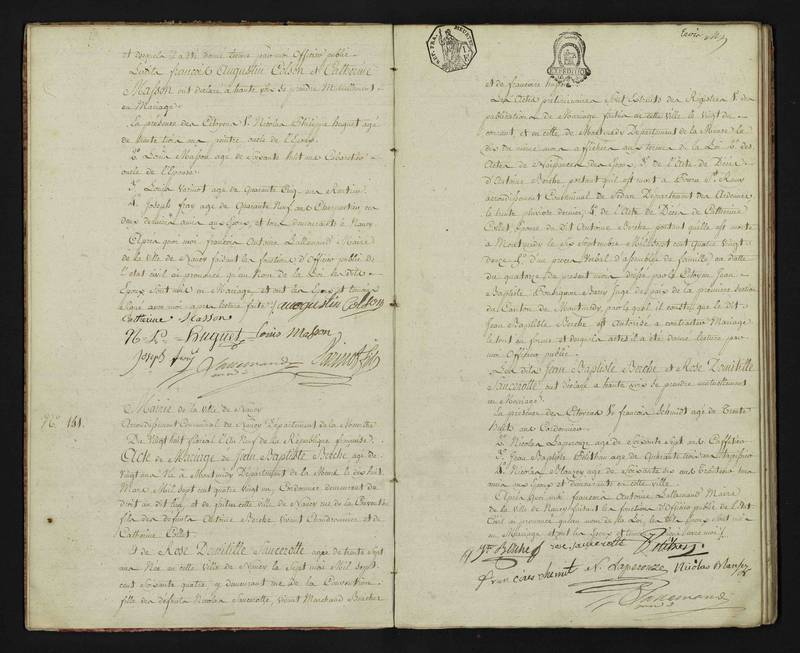 et desquels il a été donné lecture par moi Officier public.
Les dits françois Augustin Colson et Catherine
Masson ont déclaré à haute voix se prendre Mutuellement
en Mariage.
En présence des Citoyens 1°. Nicolas Philippe Huguet agé
de trente trois ans peintre oncle de l'Epoux
2°. Louis Masson agé de Soixante huit ans Cabaretier
oncle de l'Epouse
3°. Louis agé de Quarante Cinq ans Rentier
4°. Joseph frey agé de Quarante Neuf ans Charpentier, les
deux derniers amis aux Epoux, et tous demeurants à Nancy
Après quoi moi, francois Antoine Lallemand Maire
de la ville de Nancy faisant les fonctions d'Officier public de
l'etat civil ai prononcé qu'au Nom de la Loi les dits
Epoux sont unis en Mariage et ont les Epoux et temoins
signé avec moi après lecture faite. auugustin Colson
Catherine Masson
Huguet Louis Masson
Joseph frey
Lallemand
N°. 151.
Mairie de la ville de Nancy
Arrondissement Communal de Nancy Département de la Meurthe
Du Vingt huit floréal l'An Neuf de la République française.
Acte de Mariage de Jean Baptiste Berche agé de
vingt ans Né à Montmédy Département de la Meuse le dix huit
Mars Mil Sept cent quatre vingt un, Cordonnier demeurant de
droit au dit lieu, et de fait en cette ville de Nancy rue de la
fils des défunts Antoine Berche vivant et de
Catherine Collet
Et de Rose Domitille Saucerotte agée de trente Sept
ans Née en cette ville de Nancy le Sept mai Mil Sept
cent Soixante quatre, y demeurant rue de la Constitution
fille des défunts Nicolas Saucerotte, vivant Marchand Boucher
EXPEDITIO
et de francoise
Les Actes préliminaires sont Extraits des Registres 1°. des
publications de Mariage faites en cette ville le vingt du
courant, et en celle de Montmédy Département de la Meuse le
dix du même mois affichées aux termes de la Loi 2°. des
Actes de Naissances des Epoux, 3°. de l'Acte de Décès
d'Antoine Berche portant qu'il est mort à
arrondissement Communal de Sedan Département des Ardennes
le trente pluviose dernier, 4°. de l'Acte de Décès de Catherine
Collet Epouse du dit Antoine Berche portant qu'elle est morte
à Montmédy le six Septembre Mil Sept cent quatre vingt
5°. d'un procès Verbal d'assemblée de famille, en datte
du quatorze du présent mois dressé par le Citoyen Jean
Baptiste Juge de paix de la première section
du Canton de Montmédy, par lequel il conste que le dit
Jean Baptiste Berche est Autorisé à contracter Mariage
le tout en forme et desquels actes il a été donné lecture par
moi Officier public.
Les dits Jean Baptiste Berche et Rose Domitille
Saucerotte ont déclaré à haute voix se prendre mutuellement
en Mariage.
En présence des Citoyens 1°. francois Schmidt agé de Trente
huit ans Cordonnier
2°. Nicolas Laperouze agé de Soixante Sept ans
3°. Jean Baptiste agé de Quarante trois ans Tapissier
4°. Nicolas agé de Soixante dix ans tous
amis aux Epoux et demeurants en cette ville
Après Quoi moi francois Antoine Lallemand Maire
de la ville de Nancy faisant les fonctions d'Officier public de l'Etat
Civil ai prononcé qu'au nom de la Loi, les dits Epoux sont unis
en Mariage et ont les Epoux et temoins signé avec moi
Berche rose saucerotte
francois N. Laperouze Nicolas
Lallemand